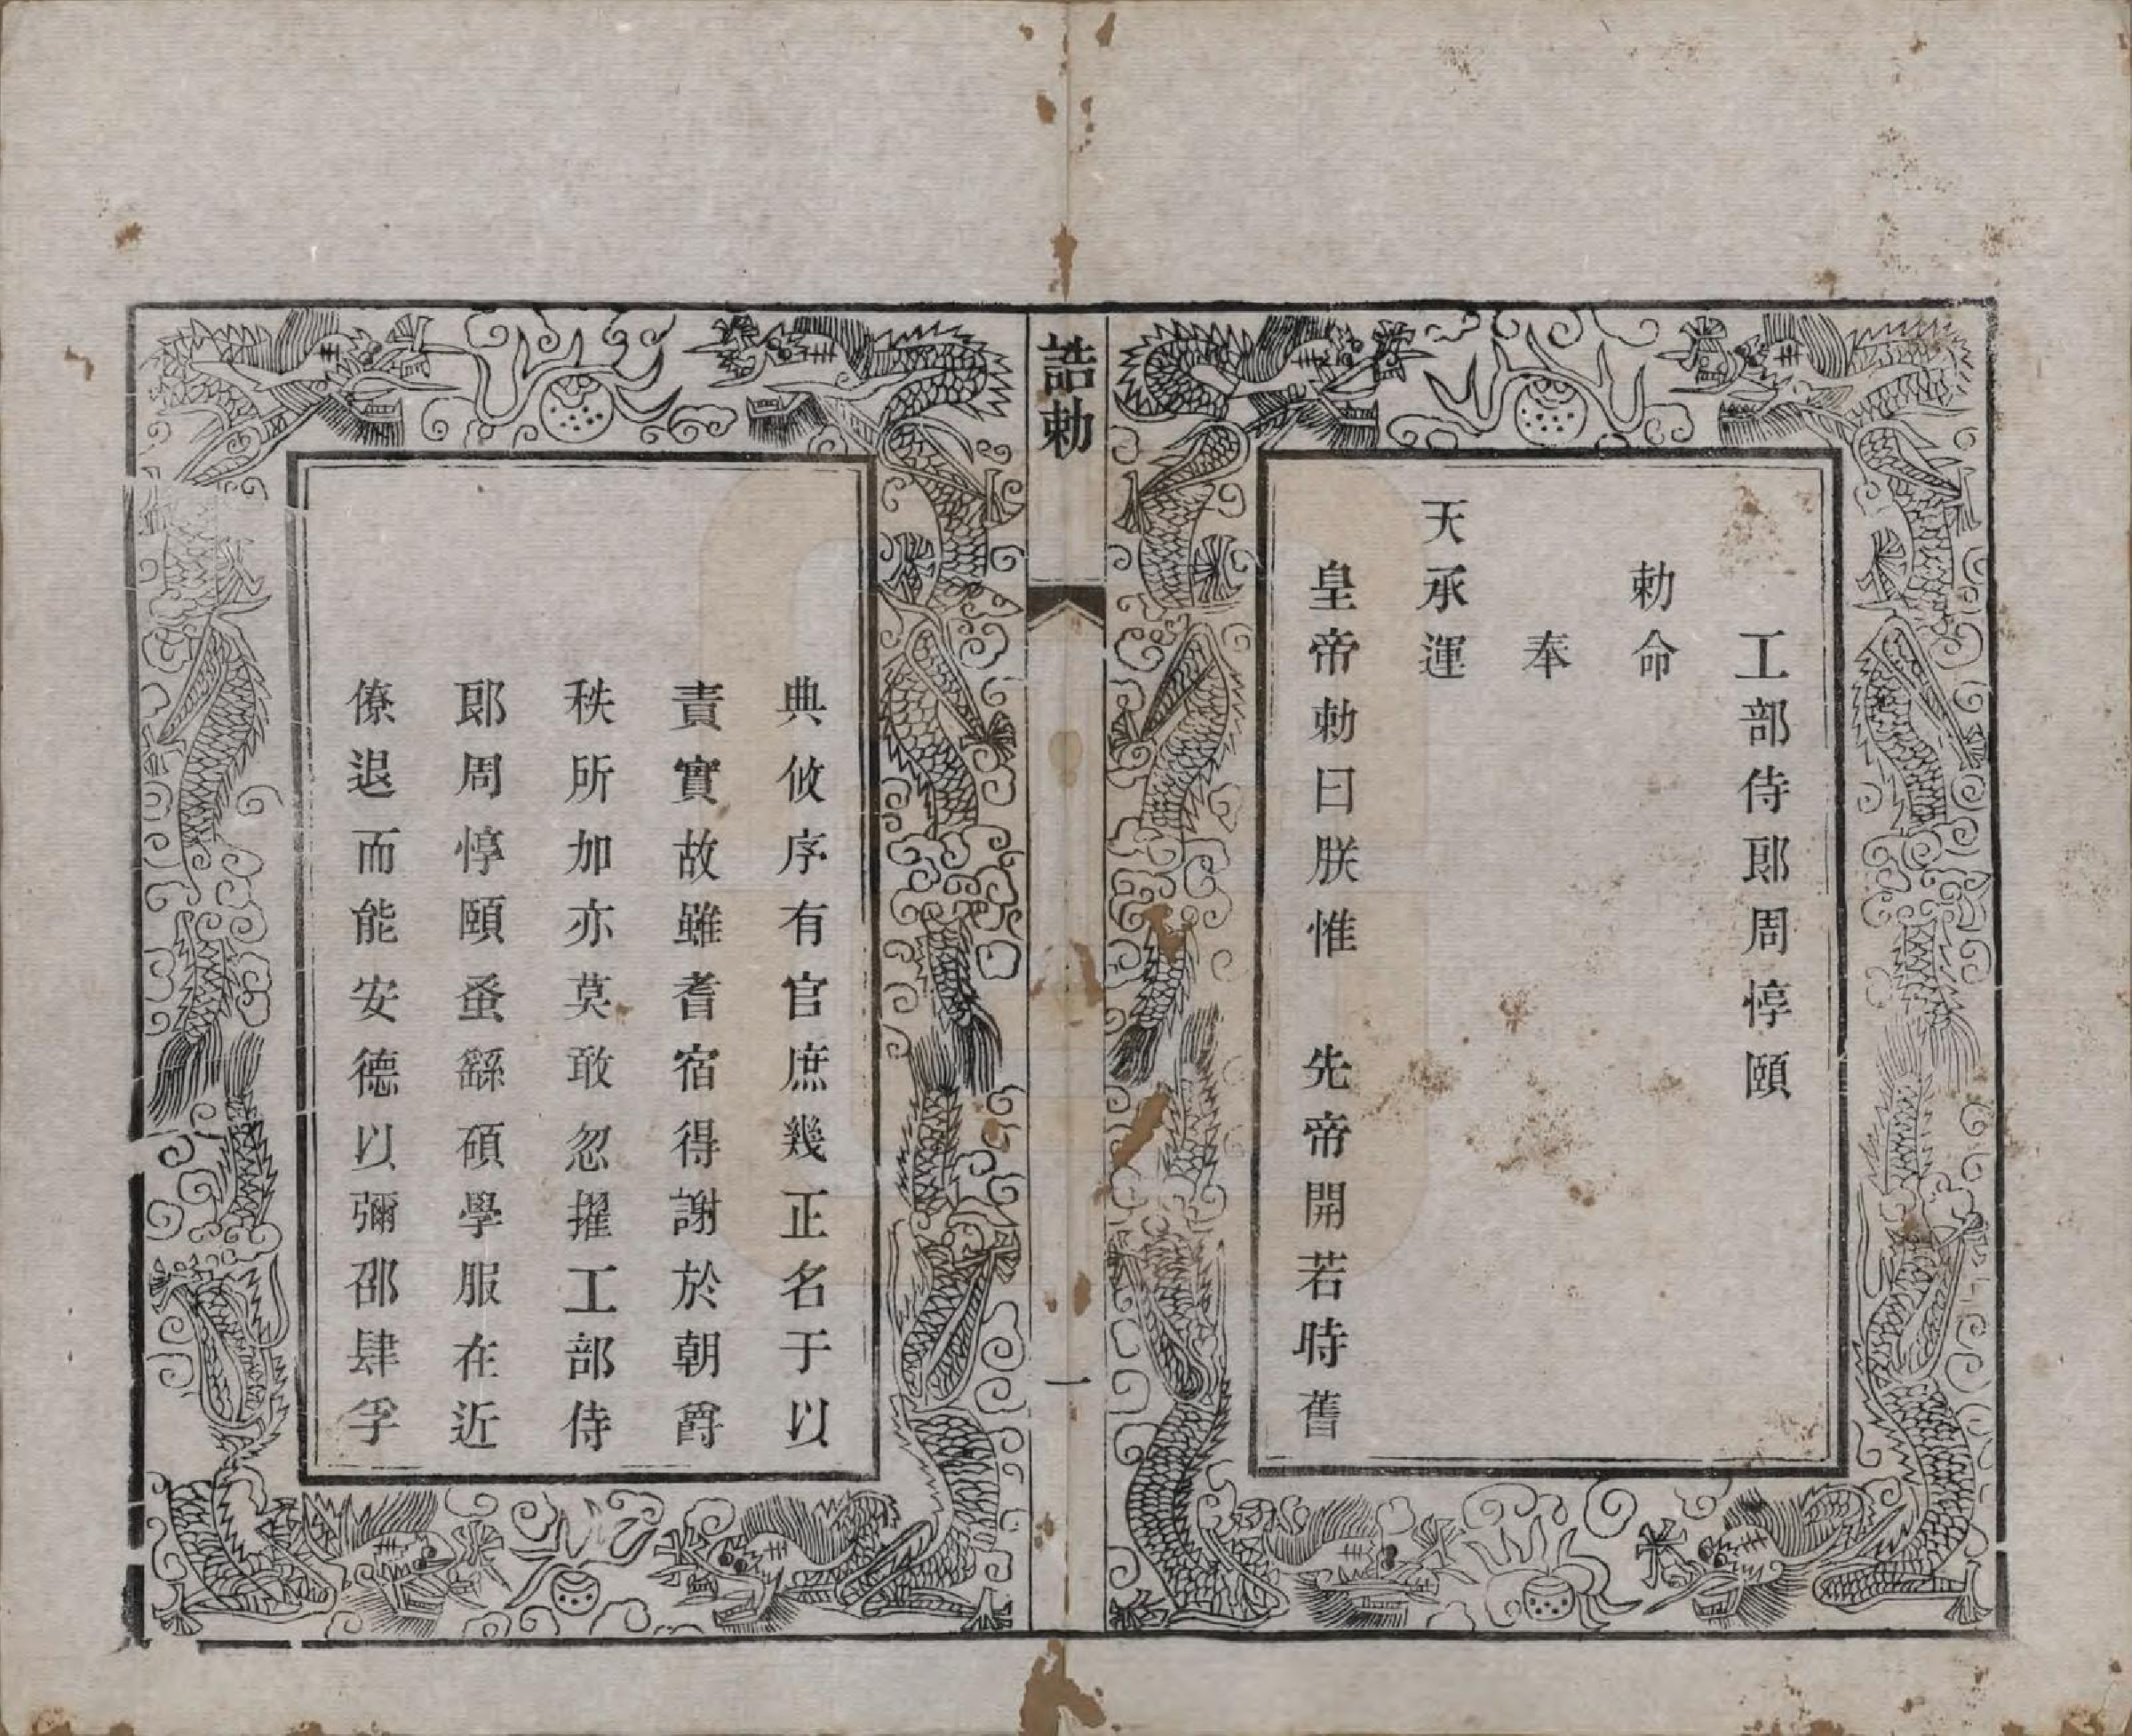 工部侍郎周惇頤
勅命
奉
天承運
皇帝勅曰朕惟　先帝開若時舊
誥勅
一
典攸序有官庶幾正名于以
責實故雖耆宿得謝於朝爵
秩所加亦莫敢忽擢工部侍
郎周惇頤蚤繇碩學服在近
僚退而能安德以彌邵肆孚